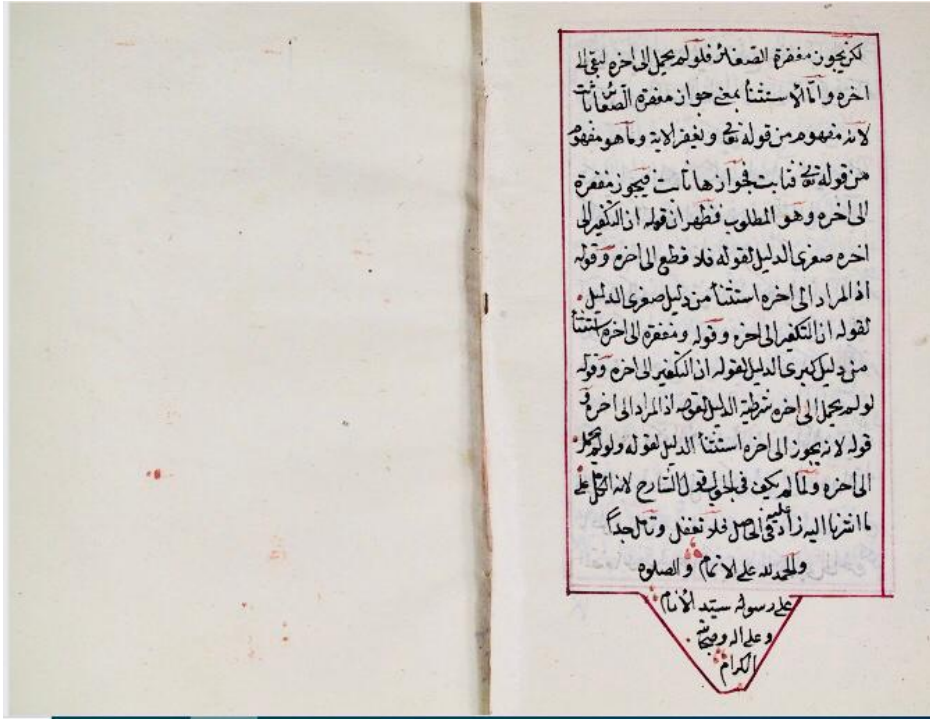 لكن يجوز مغفرة الصغائر فلو لم يحمل الى اخره لبقى الى
اخره وأما الاستثنأ بمعنى جواز مغفرة الصغائر ثابت
لانه مفهوم من قوله تعالى ويغفر الاية وما هو مفهوم
من قوله تعالى فثابت فجوازها ثابت فيجوز مغفرة
الى اخره وهو المطلوب فظهر ان قوله ان التكفير الى
اخره صغرى الدليل لقوله فلا قطع الى اخره وقوله
اذ المراد الى اخره استثنأ من دليل صغرى الدليل
لقوله ان التكفير الى اخره وقوله ومغفرة الى اخره استثنأ
من دليل كبرى الدليل لقوله ان التكفير الى اخره وقوله
لو لم يحمل الى اخره شرطية الدليل لقوله اذ المراد الى اخره و
قوله لانه يجوز الى اخره استثنأ الدليل لقوله ولو لم يحمل
الى اخره ولما لم يكن في قول الشارح لانه على
ما اشرنا اليه زاد عليه في الحاصل فلا تغفل وتأمل جدا
والحمد لله على الاتمام والصلوة
على رسوله سيد الأنام
وعلى اله وصحابته
الكرام